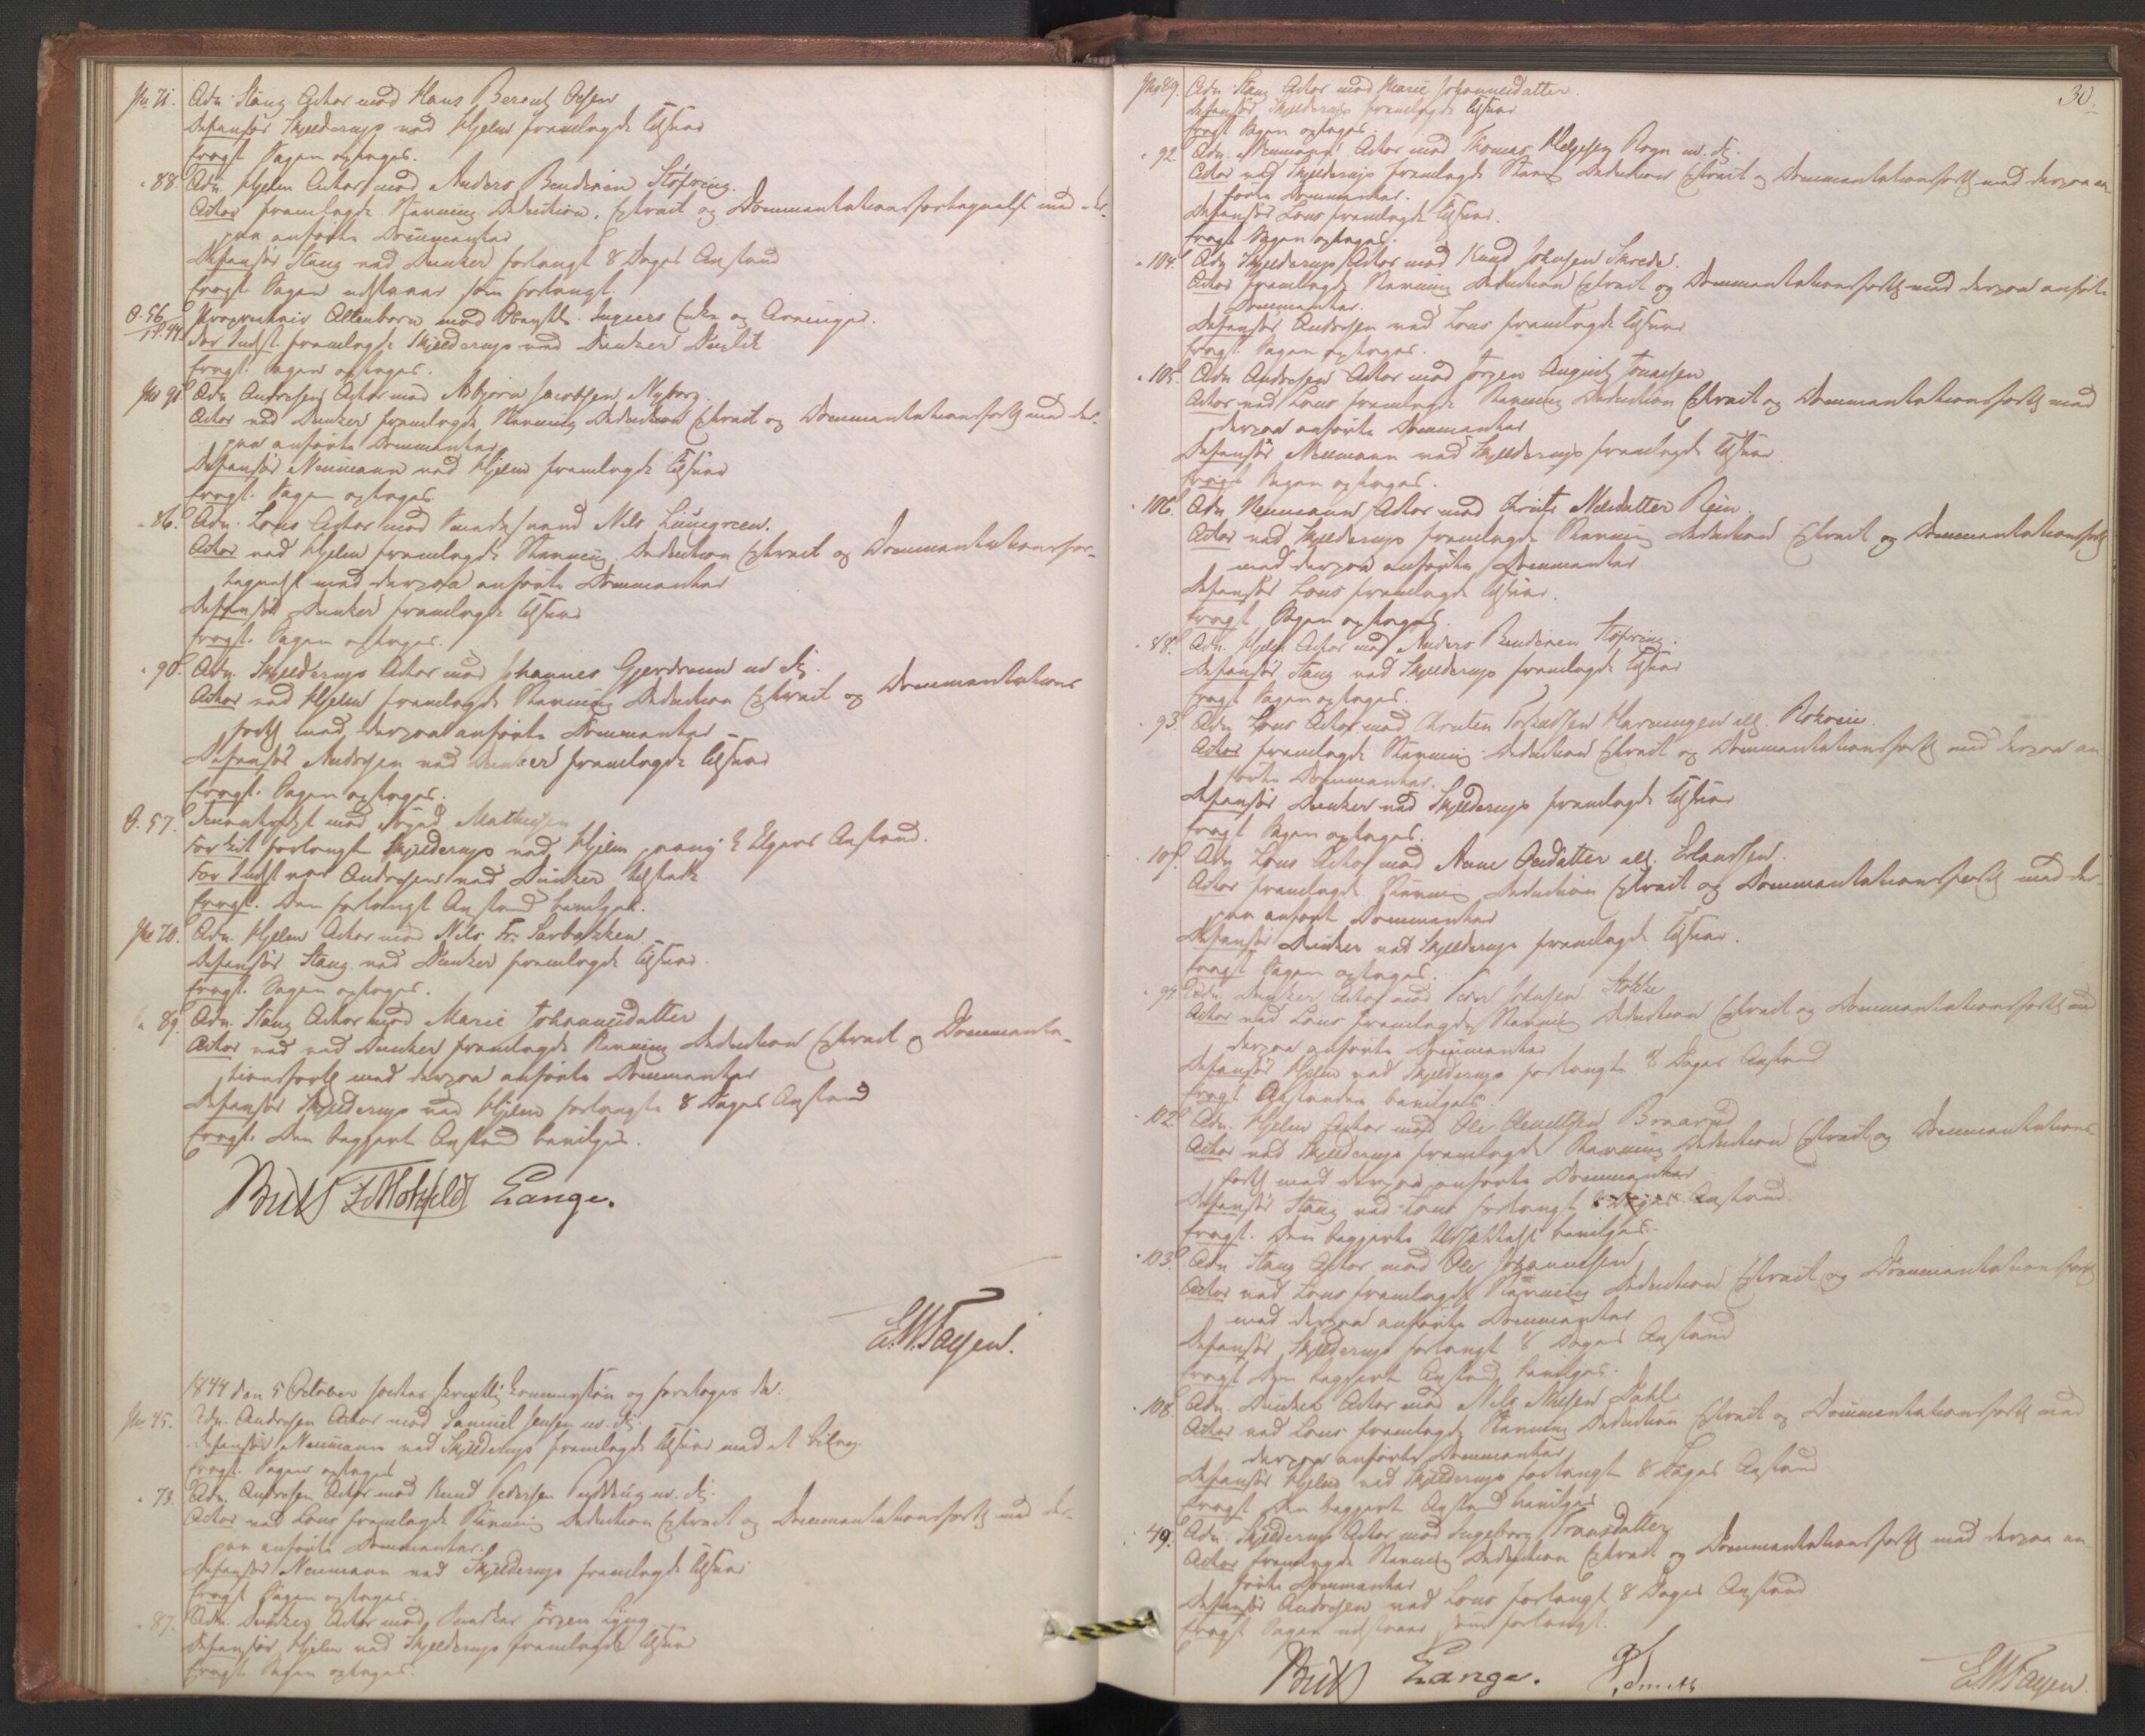 No 71. Adv. Stang Actor mod Hans Berent Olsen
Defensor Skjelderup ved Hjelm fremlagde Tilsvar
Eragt. Sagen optages.
" 88. Adv. Hjelm Actor mod Anders Bendixen Støfring.
Actor fremlagde Stevning Deduction, Extract og Documentationsfortegnelse med der-
paa anførte Documenter
Defensor Stang ved Dunker forlangt 8 Dages Anstand
Eragt. Sagen udstaaer som forlangt.
O. 56 Proprietair Altenborn mod Obersttl. Enke og Arvinger.
For Indst. fremlagde Skjelderup ved Dunker
Eragt. Sagen optages.
No 91. Adv. Andresen Actor mod Asbjørn Jacobsen Nyborg.
Actor ved Dunker fremlagde Stevning Deduction Extract og Documentationsfortg med der-
paa anførte Documenter
Defensor Neumann ved Hjelm fremlagde Tilsvar
Eragt. Sagen optages
" 86. Adv. Lous Actor mod Nils Liungreen.
Actor ved Hjelm fremlagde Stevning, Deduction Extract og Documentationsfor-
tegnelse med derpaa anførte Documenter
Defensor Dunker fremlagde Tilsvar
Eragt. Sagen optages.
" 90. Adv. Skjelderup Actor mod Johannes Gjerdrum m. fl.
Actor ved Hjelm fremlagde Stevning Deduction Extract og Documentations
fortg med derpaa anførte Documenter
Defensor Andresen ved Dunker fremlagde Tilsvar
Eragt. Sagen optages.
O. 57. mod Mathiesen
For Cit. forlangt Skjelderup ved Hjelm Anstand.
For Indst. Andresen ved Dunker
Eragt. Den forlangte Anstand bevilges.
No 70. Adv. Hjelm Actor mod Nils Fr. Sarbakken.
Defensor Stang ved Dunker fremlagde Tilsvar.
Eragt. Sagen optages.
" 89. Adv. Stang Actor mod Marie Johannesdatter
Actor ved ved Dunker fremlagde Stevning Deduction Extract og Documenta-
tionsfortg med derpaa anførte Documenter
Defensor Skjelderup ved Hjelm forlangte 8 Dages Anstand
Eragt. Den begjerte Anstand bevilges.
Motzfeldt Lange.
1844 den 5 October holdtes skriftlig Commission og foretoges da:
No 45. Adv. Andresen Actor mod Samuel Jensen m. fl.
Defensor Neumann ved Skjelderup fremlagde Tilsvar med et Bilag.
Eragt. Sagen optages
" 73. Adv. Andresen Actor mod Knud Pedersen m. fl.
Actor ved Lous fremlagde Stevning Deduction Extract og Documentationsfortg med der-
paa anførte Documenter.
Defensor Neumann ved Skjelderup fremlagde Tilsvar
Eragt Sagen optages.
" 87. Adv. Dunker Actor mod Jørgen Lyng
Defensor Hjelm ved Skjelderup fremlagde Tilsvar
Eragt Sagen optages.
30.
No 89. Adv. Stang Actor mod Marie Johannesdatter.
Defensor Skjelderup fremlagde Tilsvar
Eragt Sagen optages.
" 92 Adv. Neumann Actor mod Thomas Helgesen Rogn m. fl.
Actor ved Skjelderup fremlagde Stevn. Deduction Extract og Documentationsfortg med derpaa an-
førte Documenter.
Defensor Lous fremlagde Tilsvar.
Eragt Sagen optages.
" 104. Adv. Skjelderup Actor mod Knud Johnsen Skrede.
Actor fremlagde Stevning Deduction Extract og Documentationsfortg med derpaa anførte
Documenter.
Defensor Andresen ved Lous fremlagde Tilsvar
Eragt Sagen optages.
" 105. Adv. Andresen Actor mod Jørgen August
Actor ved Lous fremlagde Stevning Deduction Extract og Documentationsfortg med
derpaa anførte Documenter
Defensor Neumann ved Skjelderup fremlagde Tilsvar
Eragt Sagen optages.
" 106. Adv. Neumann Actor mod Nilsdatter
Actor ved Skjelderup fremlagde Stevning Deduction Extract og Documentationsfortg
med derpaa anførte Documenter
Defensor Lous fremlagde Tilsvar.
Eragt Sagen optages.
" 88. Adv. Hjelm Actor mod Anders Bendixen Støfring.
Defensor Stang ved Skjelderup fremlagde Tilsvar
Eragt Sagen optages.
" 93. Adv. Lous Actor mod
Actor fremlagde Stevning Deduction Extract og Documentationsfortg med derpaa an
førte Documenter.
Defensor Dunker ved Skjelderup fremlagde Tilsvar
Eragt Sagen optages.
" 107. Adv. Lous Actor mod Anne
Actor fremlagde Stevning Deduction Extract og Documentationsfortg med der-
paa anførte Documenter
Defensor Dunker ved Skjelderup fremlagde Tilsvar.
Eragt Sagen optages.
" 94. Adv. Dunker Actor mod Peder Johnsen Stokke
Actor ved Lous fremlagde Stevning Deduction Extract og Documentationsfortg med
derpaa anførte Documenter
Defensor Hjelm ved Skjelderup forlangte 8 Dages Anstand
Eragt Anstanden bevilges.
" 102. Adv. Hjelm Actor mod Ole
Actor ved Skjelderup fremlagde Stevning Deduction Extract og Documentations
fortg med derpaa anførte Documenter
Defensor Stang ved Lous forlangt 8 Dages Anstand.
Eragt. Den begjerte Udsættelse bevilges.
" 103. Adv. Stang Actor mod Ole Johannesen
Actor ved Lous fremlagde Stevning Deduction Extract og Documentationsfortg
med derpaa anførte Documenter
Defensor Skjelderup forlangt 8 Dages Anstand
Eragt Den begjerte Anstand bevilges.
" 108. Adv. Dunker Actor mod Nils Nielsen Dahl
Actor ved Lous fremlagde Stevning Deduction Extract og Documentationsfortg med
derpaa anførte Documenter
Defensor Hjelm ved Skjelderup forlangt 8 Dages Anstand
Eragt Den begjerte Anstand bevilges
" 49. Adv. Skjelderup Actor mod Ingeborg
Actor fremlagde Stevning Deduction Extract og Documentationsfortg med derpaa an
førte Documenter
Defensor Andresen ved Lous forlangt 8 Dages Anstand
Eragt Sagen udstaaer som forlangt.
Lange.